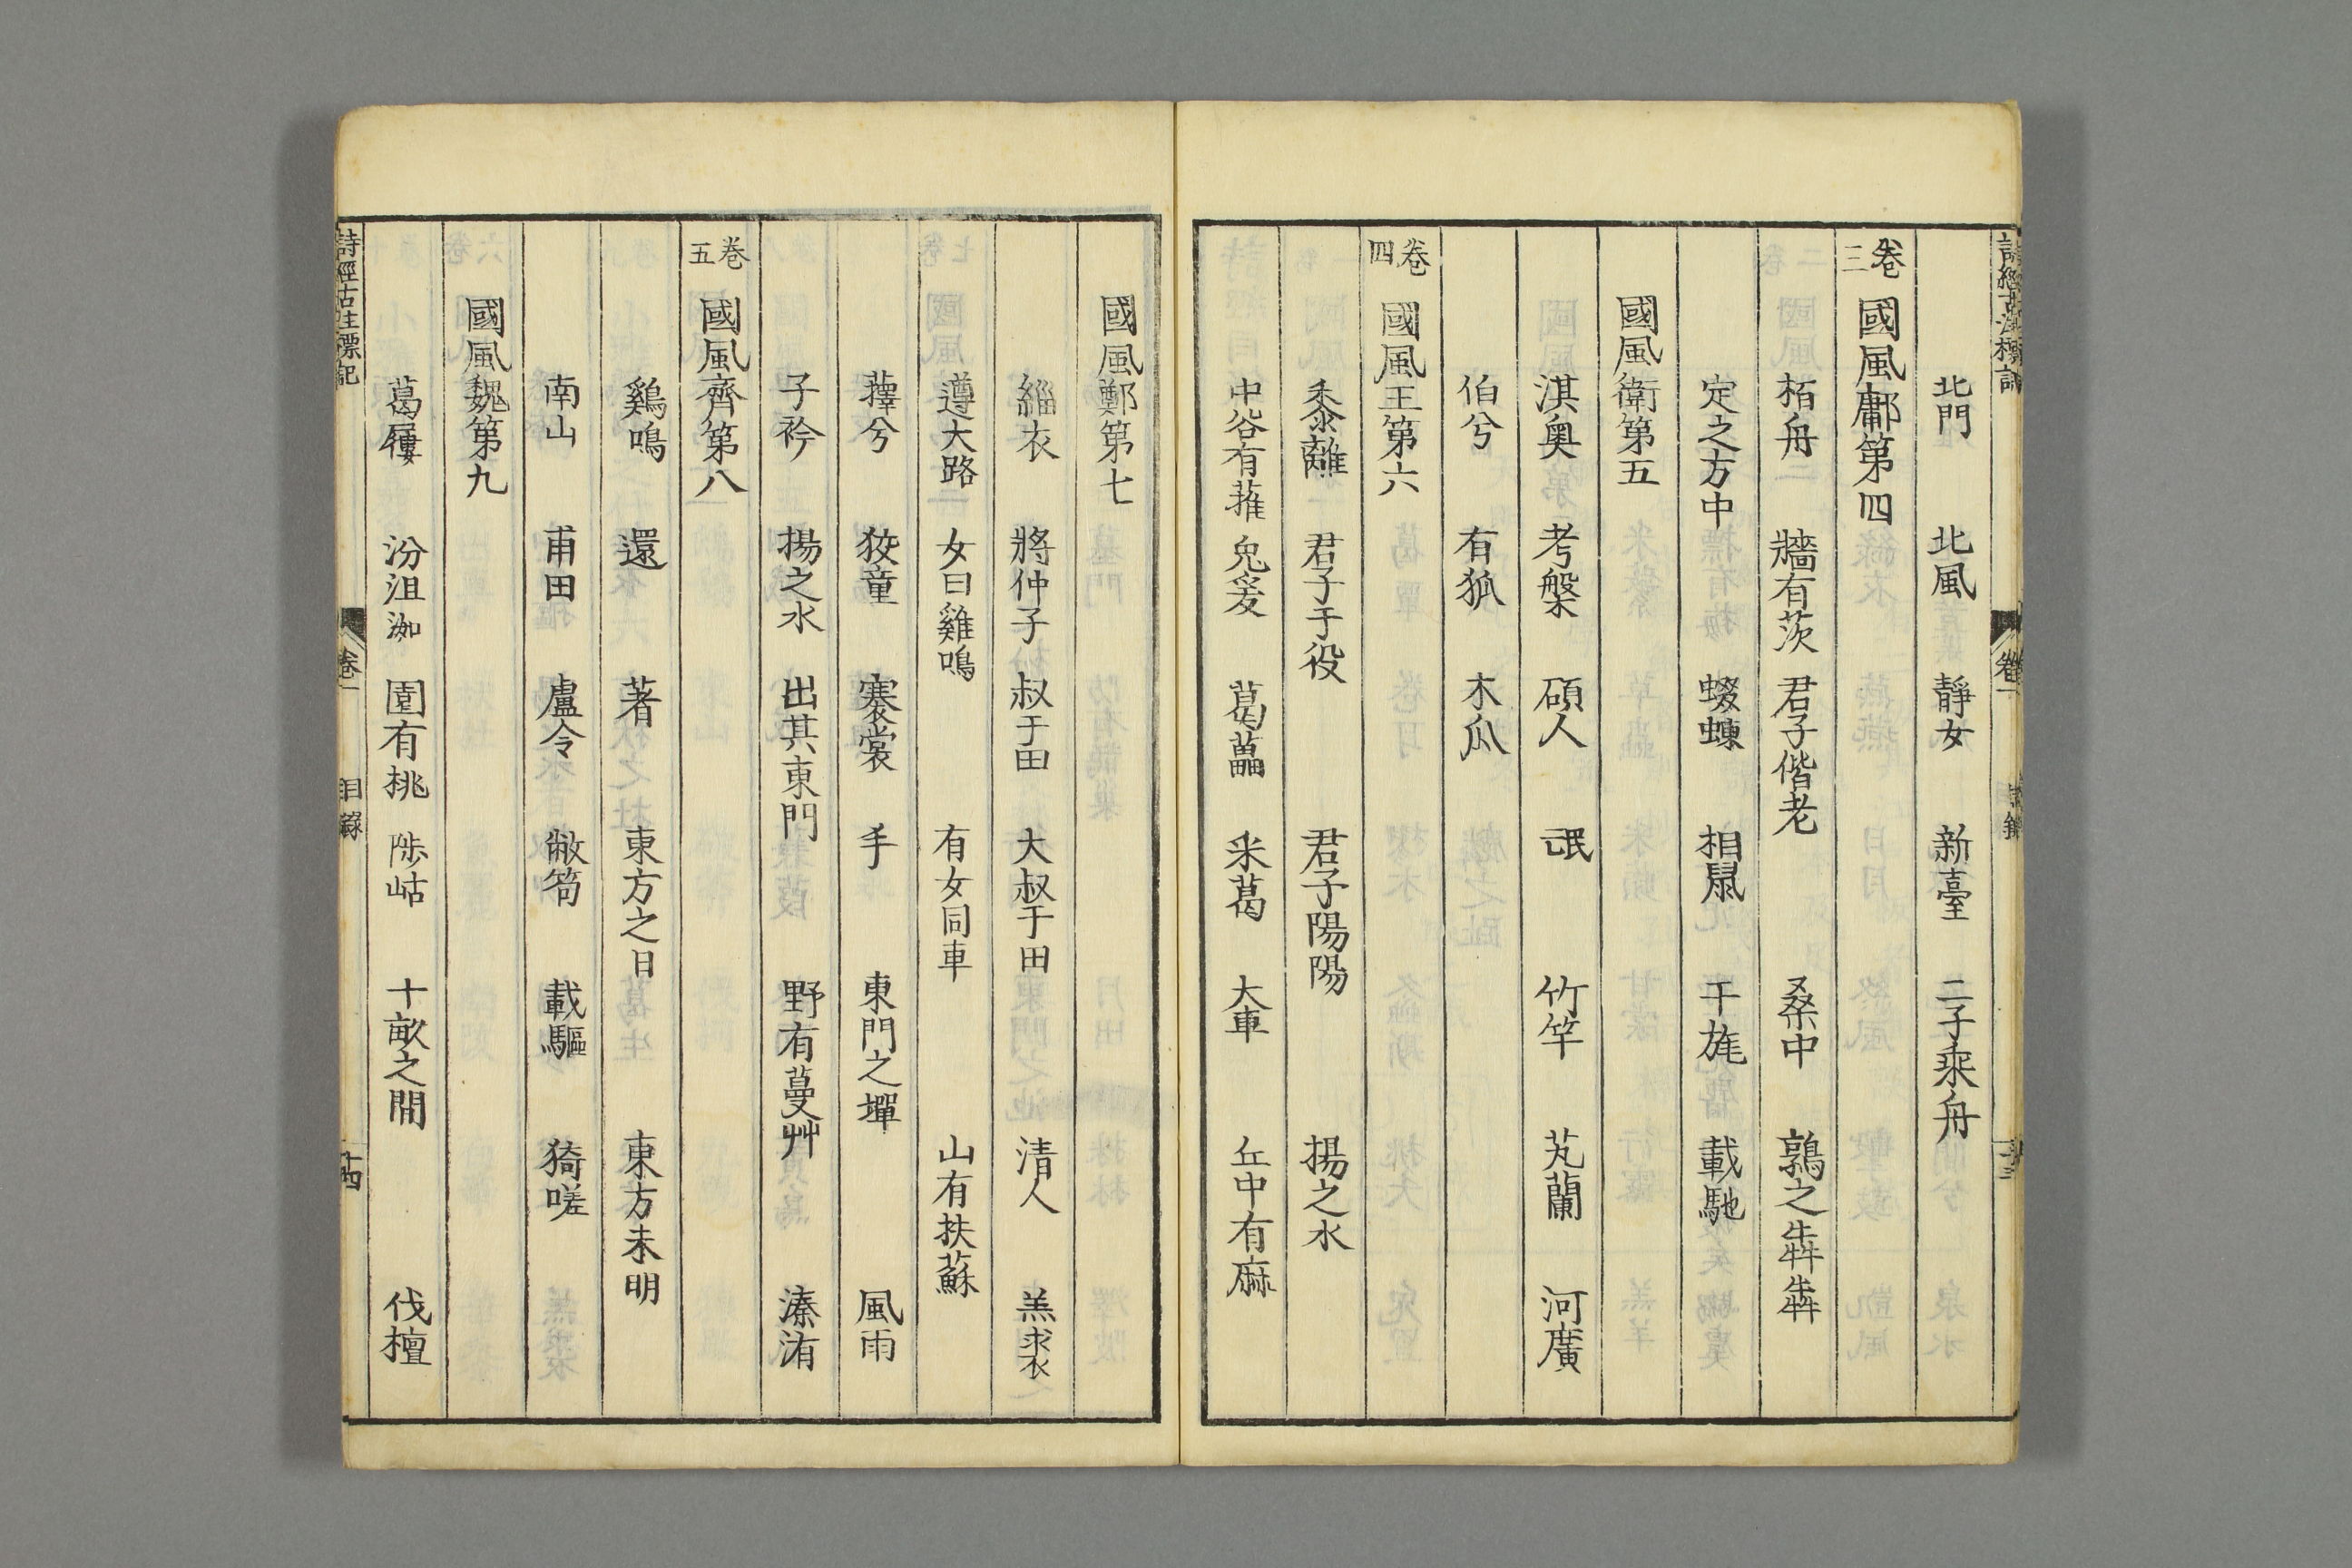 北門 北風 靜女 新臺 二子乘舟
卷三 國風鄘第四
栢舟 牆有茨 君子偕老 桑中 鶉之犇犇
定之方中 蝃蝀 相鼠 干旄 載馳
國風衛第五
淇奧 考槃 碩人 氓 竹竿 芄蘭 河廣
伯兮 有狐 木瓜
卷四 國風王第六
黍離 君子于役 君子陽陽 揚之水
中谷有蓷 兔爰 葛藟 采葛 大車 丘中有麻
國風鄭第七
緇衣 將仲子 叔于田 大叔于田 清人 羔裘
遵大路 女曰雞鳴 有女同車 山有扶蘇
蘀兮 狡童 褰裳 丰 東門之墠 風雨
子衿 揚之水 出其東門 野有蔓艸 溱洧
卷五 國風齊第八
鷄鳴 還 著 東方之日 東方未明
南山 甫田 盧令 敝笱 載驅 猗嗟
國風魏第九
葛屨 汾沮洳 園有桃 陟岵 十畝之間 伐檀
詩經古注標記 卷一 目錄 十四